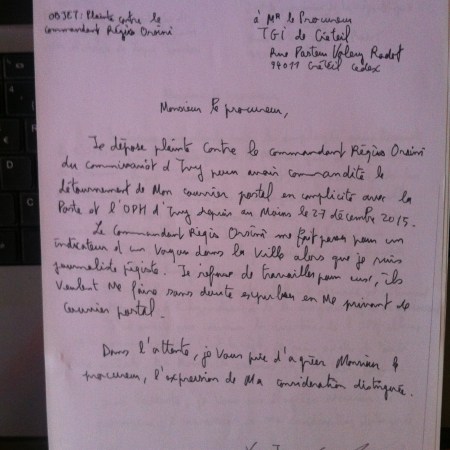 OBJET: Plainte contre le
commandant Régis Orsini
à Mr le Procureur
TGI de Créteil
Rue Pasteur Valery Radot
94011 Créteil cedex
Monsieur le procureur,
Je dépose plainte contre le commandant Régis Orsini
du commissariat d'Ivry pour avoir commandité le
détournement de Mon courrier postal en complicité avec la
Poste et l'OPH d'Ivry depuis au Moins le 27 décembre 2015.
Le Commandant Régis Orsini me fait passer pour un
indicateur et un voyou dans la Ville alors que je suis
journaliste pigiste. Je refuse de travailler pour eux, ils
veulent Me faire sans doute expulser en Me privant de
Courrier postal.
Dans l'attente, je Vous prie d'agréer Monsieur le
procureur, l'expression de Ma considération distinguée.